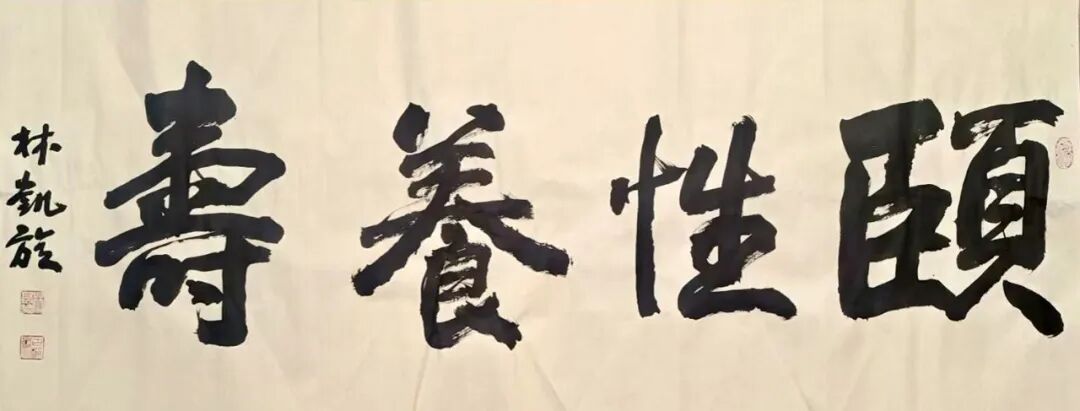 頤性養壽
林凱旋